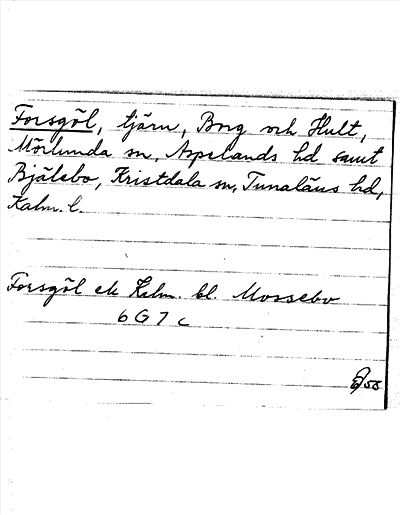 Forsgöl, tjärn, Borg och Hult,
Mörlunda sn, Aspelands hd samt
Bjälebo, Kristdala sn, Tunaläns hd,
Kalm. l.
Forsgöl ek Kalm. bl. Mossebo
6 G 7 c
55